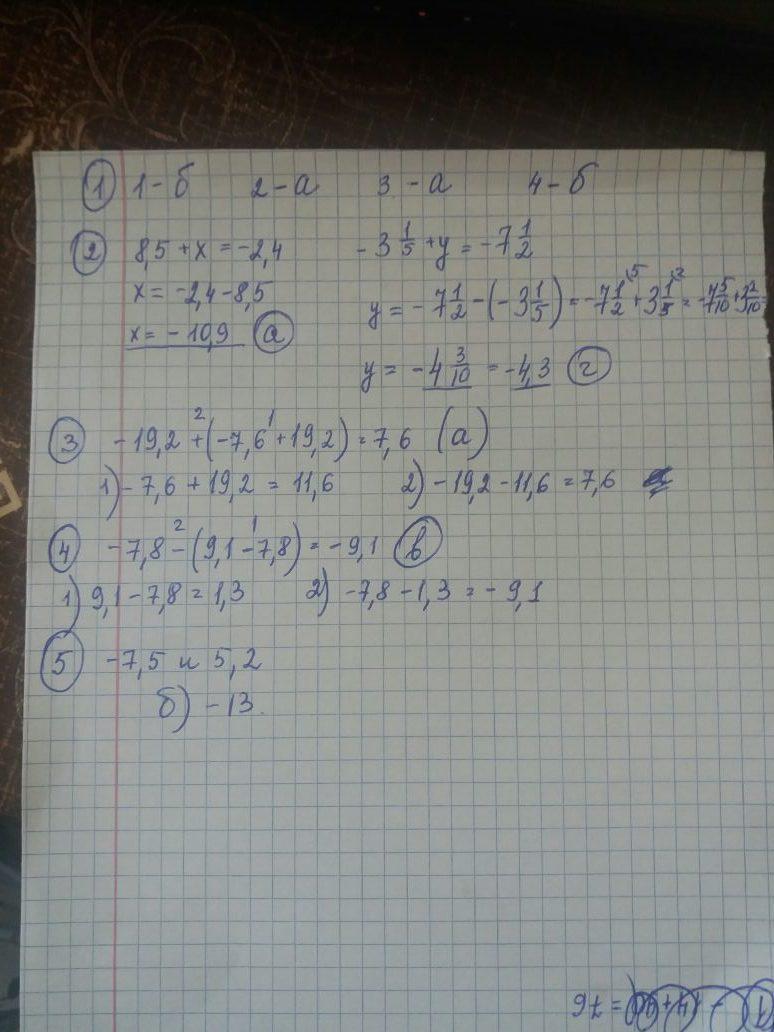 1 1-б 2-а 3-а 4-б
2 8,5 + x = -2,4 -3 1/5 + y = -7 1/2
x = -2,4 - 8,5 y = -7 1/2 - (-3 1/5) = -7 1/2 \5 + 3 1/5 \2 = -7 5/10 + 3 2/10 =
x = -10,9 а y = -4 3/10 = -4,3 г
3 -19,2 +² (-7,6 +¹ 19,2) = 7,6 (а)
1) -7,6 + 19,2 = 11,6 2) -19,2 - 11,6 = 7,6
4 -7,8 -² (9,1 -¹ 7,8) = -9,1 в
1) 9,1 - 7,8 = 1,3 2) -7,8 - 1,3 = -9,1
5 -7,5 и 5,2
б) -13.